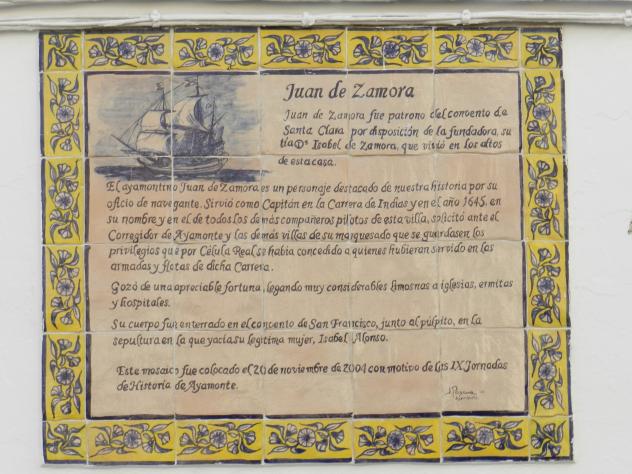 Juan de Zamora
Juan de Zamora fue patrono del convento de
Santa Clara por disposición de la fundadora, su
tía Dª Isabel de Zamora, que vivió en los altos
de esta casa.
El ayamontino Juan de Zamora es un personaje destacado de nuestra historia por su
oficio de navegante. Sirvió como Capitán en la Carrera de Indias y en el año 1645, en
su nombre y en el de todos los demás compañeros pilotos de esta villa, solicitó ante el
Corregidor de Ayamonte y las demás villas de su marquesado que se guardasen los
privilegios que por Célula Real se había concedido a quienes hubieran servido en las
armadas y flotas de dicha Carrera.
Gozó de una apreciable fortuna, legando muy considerables limosnas a iglesias, ermitas
y hospitales.
Su cuerpo fue enterrado en el convento de San Francisco, junto al púlpito, en la
sepultura en la que yacía su legítima mujer, Isabel Alonso.
Este mosaico fue colocado el 20 de noviembre de 2004 con motivo de las IX Jornadas
de Historia de Ayamonte.